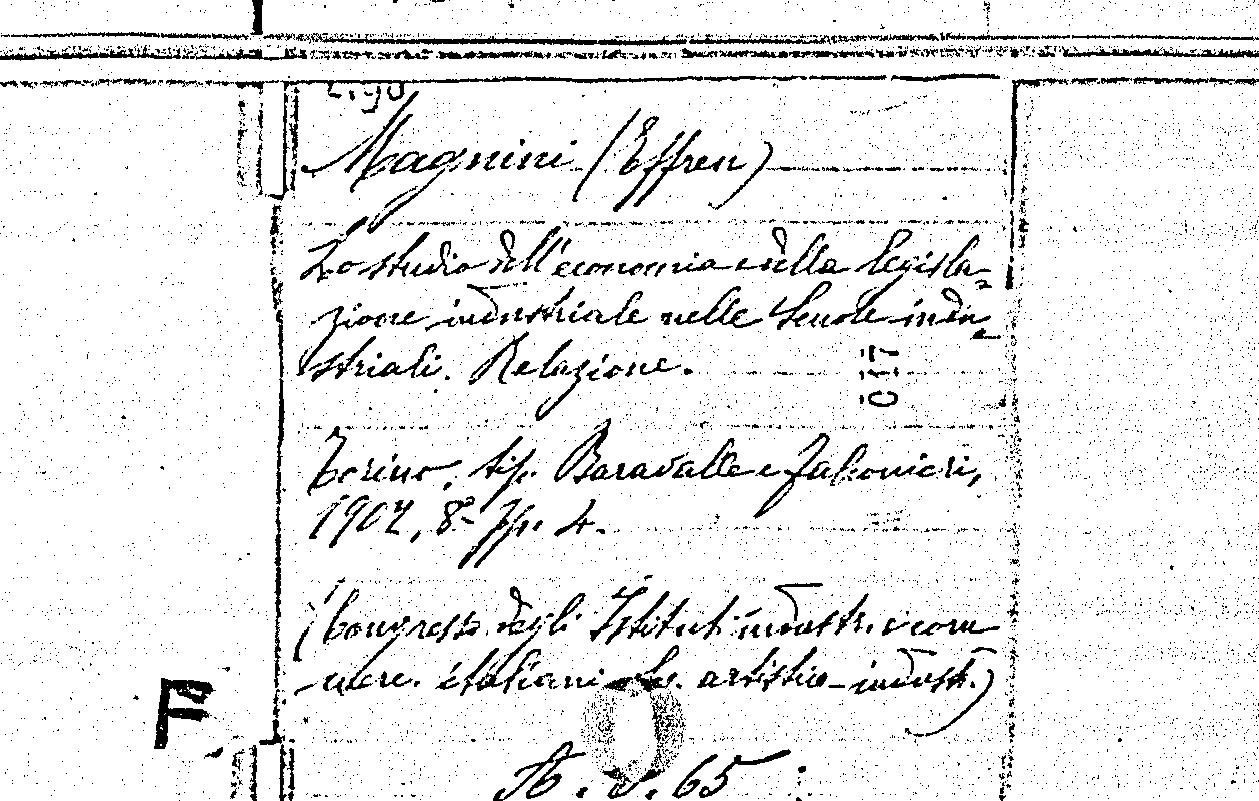 Magnini (Effren)
Lo studio dell'economia e della legisla-
zione industriale nelle Scuole indu-
striali. Relazione.
017
Torino, tip. Baravalle e Falconieri,
1902, 8º pp. 4.
(Congresso degli Istituti industr. e com
merc. italiani Sc. artistico-indust.)
F
65